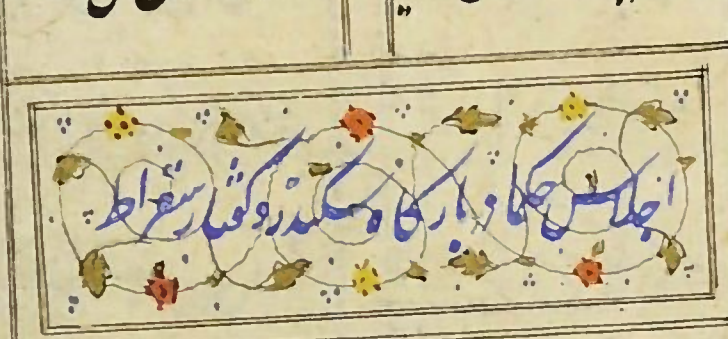 اجلاس حکما و بارگاه سکندر و گفتار سقراط